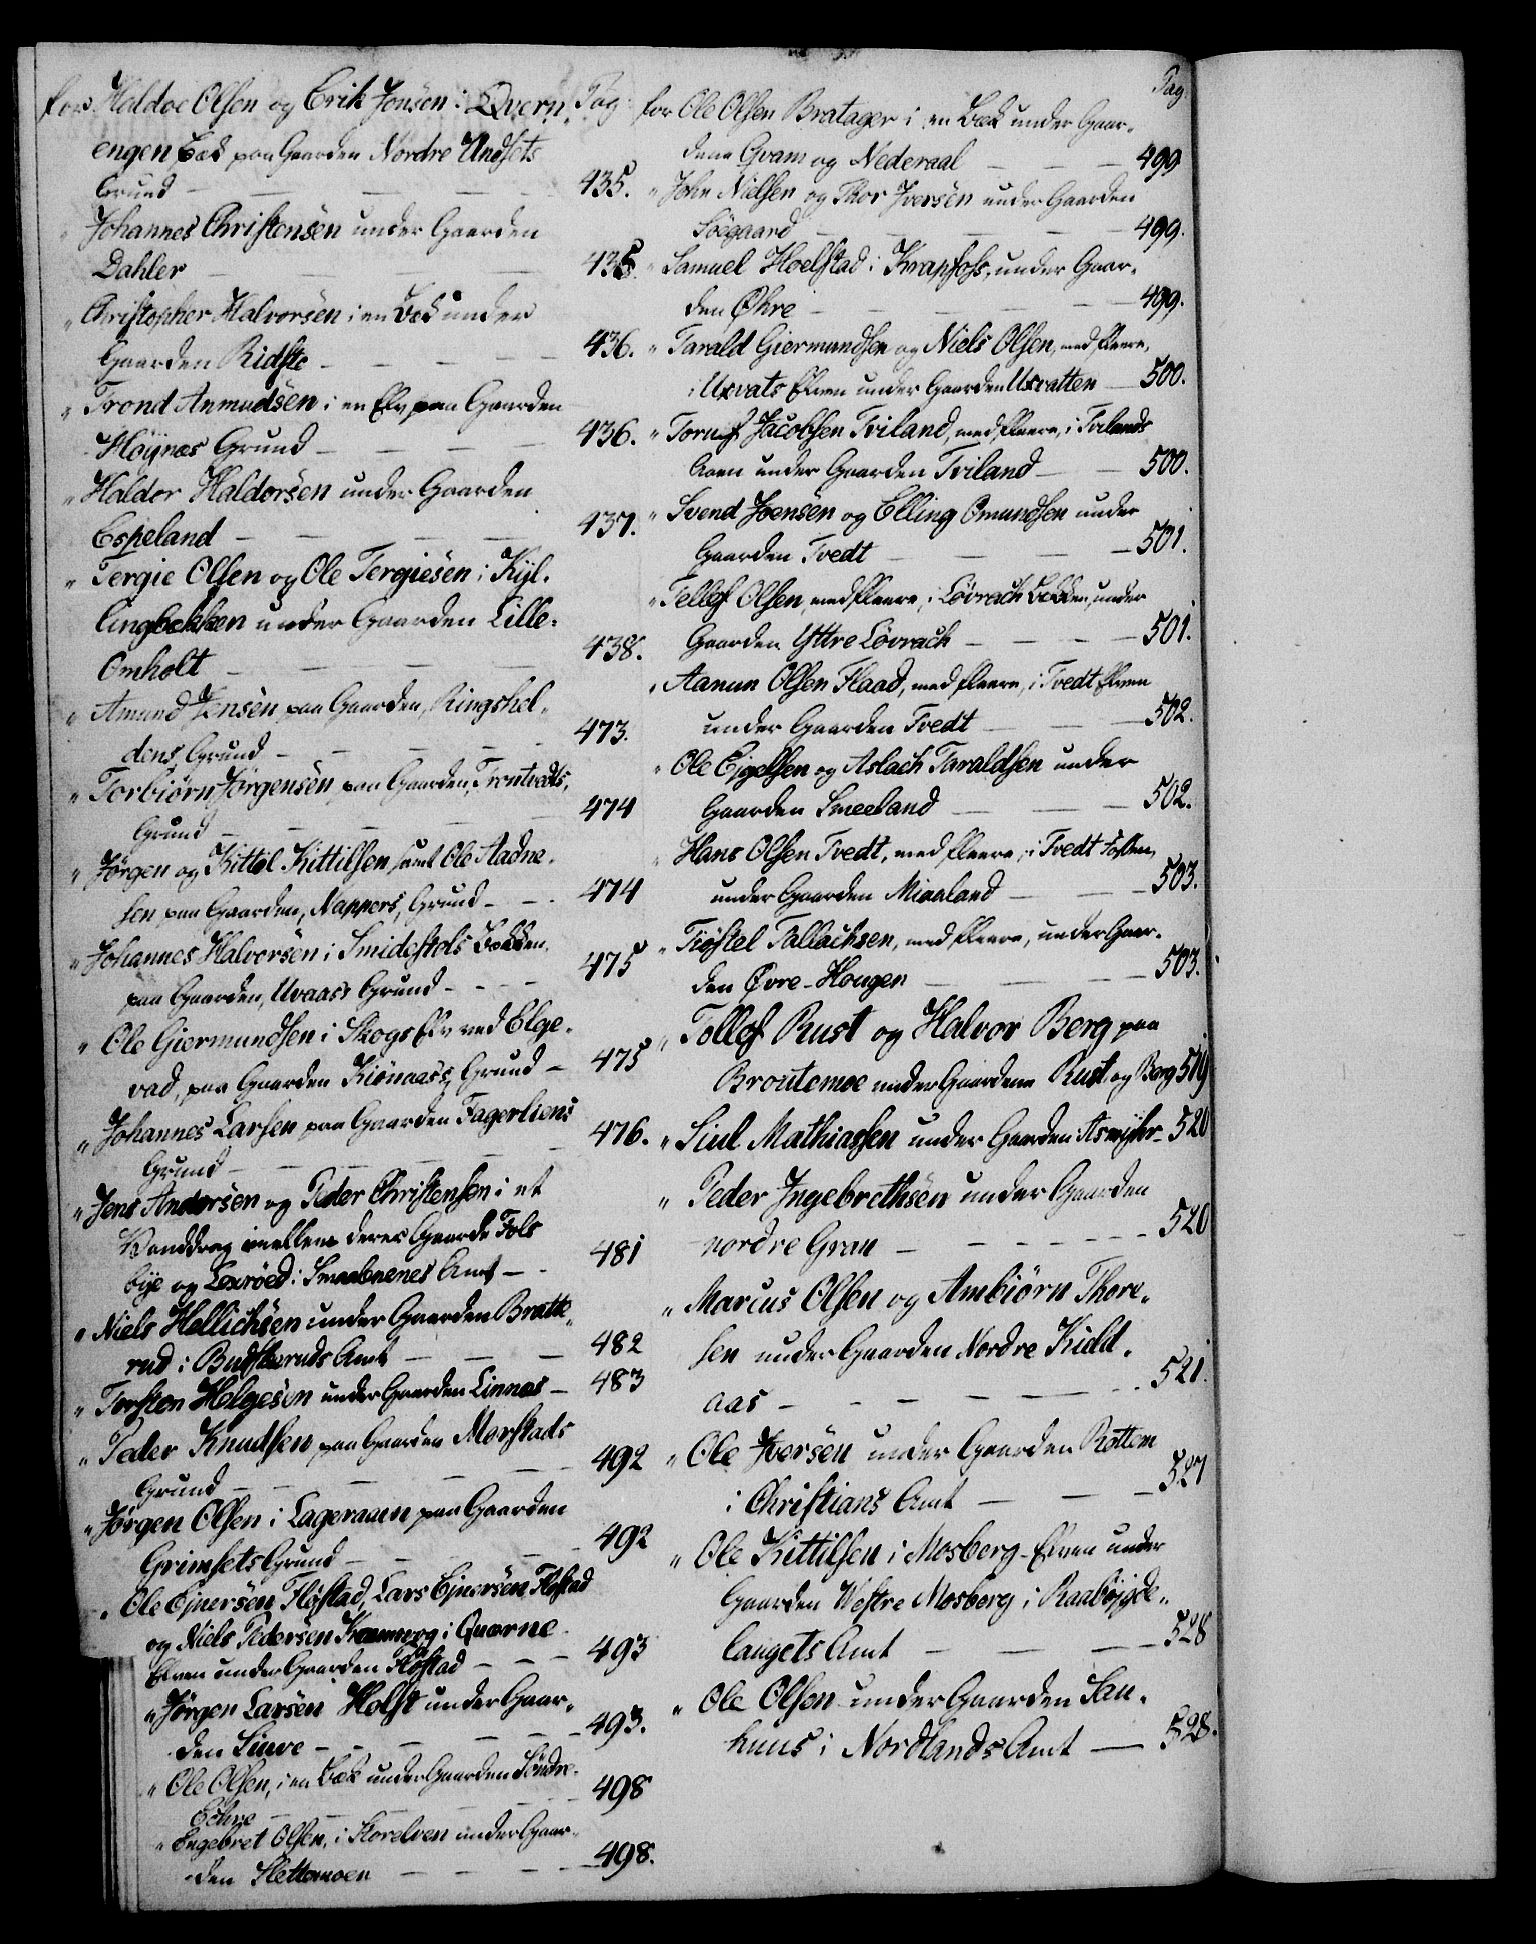 for Haldoe Olsen og Erik Jonsen i Qvern- Pag
engen Bæk paa Gaarden Nordre Undsets
Grund — 435.
" Johannes Christensen under Gaarden
Dahler — 435.
" Christopher Halvorsen i en Bæk under
Gaarden Ridste — 436.
" Trond Anmudsen i en Elv paa Gaarden
Høynæs Grund — 436.
" Haldor Haldorsen under Gaarden
Espeland — 437.
" Tergie Olsen og Ole Tergiesen i Kyl-
lingbekken under Gaarden Lille-
Omholt — 438.
" Amund Jensen paa Gaarden, Ringshol-
dens, Grund — 473.
" Torbiørn Jørgensen paa Gaarden, Trontvedts,
Grund — 474
" Jørgen og Kittel Kittilsen, samt Ole Aadne-
sen paa Gaarden, Nappers, Grund — 474
" Johannes Halvorsen i Smidestols Bækken
paa Gaarden, Uvaass Grund — 475
" Ole Giermundsen i Skogs Elv ved Elge-
vad, paa Gaarden Kiønaass, Grund — 475
" Johannes Larsen paa Gaarden Fagerliens
Grund — 476.
" Jens Andersen og Peder Christensen i et
Vanddrag imellem deres Gaarde Fols
bye og Lexröed i Smaalenenes Amt — 481
" Niels Hellichsen under Gaarden Bratte-
rud i Budskeruds Amt — 482
" Torsten Helgesen under Gaarden Linnæs — 483
" Peder Knudsen paa Gaarden Morstads
Grund — 492
" Jørgen Olsen i Lageraaen paa Gaarden
Grimsets Grund — 492
" Ole Ejnersen Fløstad, Lars Ejnersen Fløstad
og Niels Pedersen i Qværne-
Elven under Gaarden Fløstad — 493
" Jørgen Larsen Holst under Gaar-
den Siuve — 493.
" Ole Olsen, i en Bæk under Gaarden Søndre-
Echre — 498
" Engebret Olsen, i Storelven under Gaar-
den Slettemoen — 498.
Pag
for Ole Olsen Bratager i en Bæk under Gaar-
dene Qvam og Nederaal — 499
" John Nielsen og Thor Iversen under Gaarden
Søegaard — 499.
" Samuel Hoelstad i Krapfoss, under Gaar-
den Øhre — 499.
" Tarald Giermundsen og Niels Olsen, med fleere,
i Uxvats Elven under Gaarden Uxvatten — 500.
" Toruf Jacobsen Tviland, med fleere, i Tvilands
Aaen under Gaarden Tviland — 500.
" Svend Joensen og Elling Omundsen under
Gaarden Tvedt — 501.
" Tellef Olsen, med fleere, i Løvrach Bækken, under
Gaarden Yttre Løvrach — 501.
" Aanun Olsen Flaad, med fleere, i Tvedt Elven
under Gaarden Tvedt — 502.
" Ole Ejgelsen og Aslach Taraldsen under
Gaarden Smeeland — 502.
" Hans Olsen Tvedt, med fleere, i Tvedt Fossen,
under Gaarden Miaaland — 503.
" Tiøstel Tallachsen, med fleere, under Gaar-
den Øvre-Hougen — 503.
" Tollef Rust og Halvor Berg paa
Broutemoe under Gaardene Rust og Berg 519
" Siul Mathiassen under Gaarden Asmyhr — 520
" Peder Ingebrethsen under Gaarden
nordre Gran — 520
" Marcus Olsen og Ambiørn Thore-
sen under Gaarden Nordre Kield-
aas — 521.
" Ole Iversen under Gaarden Rottem
i Christians Amt — 527
" Ole Kittilsen i Mosberg-Elven under
Gaarden Westre Mosberg i Raabøjgde-
laugets Amt — 528
" Ole Olsen under Gaarden Fan-
huus i Nordlands Amt — 528.